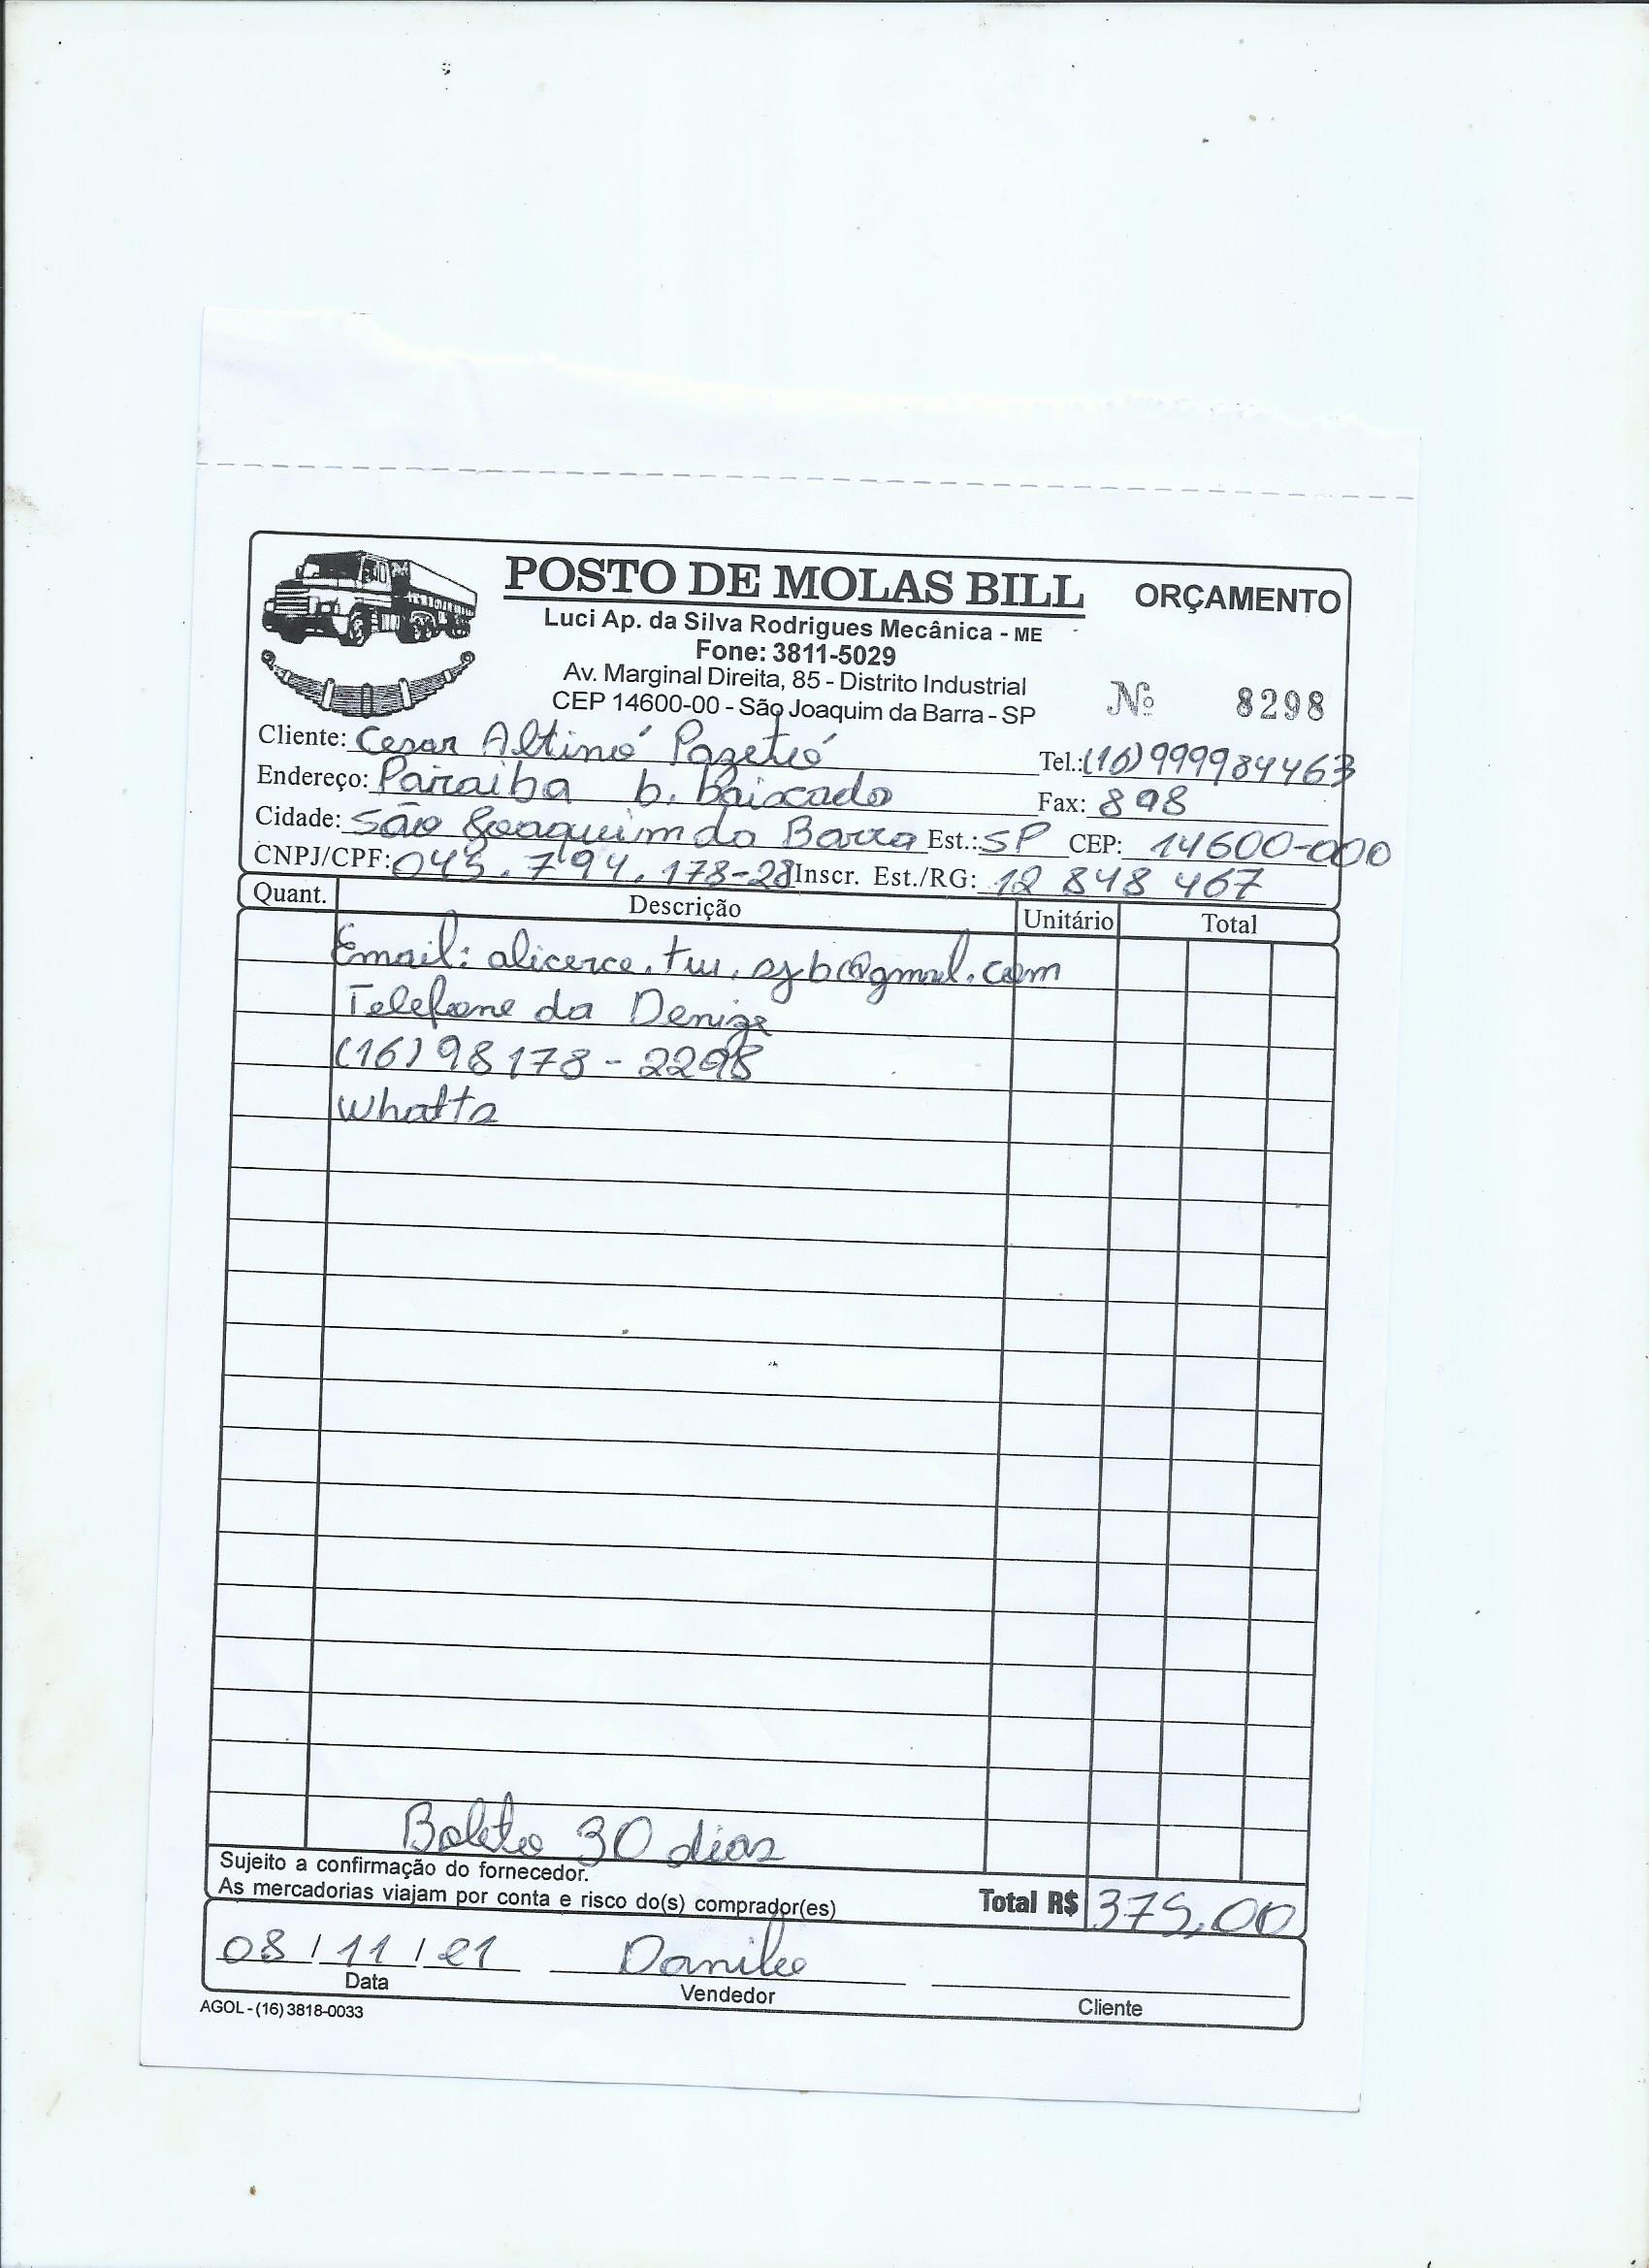 POSTO DE MOLAS BILL
ORÇAMENTO
Luci Ap. da Silva Rodrigues Mecânica - ME
Fone: 3811-5029
Av. Marginal Direita, 85 - Distrito Industrial
CEP 14600-00 - São Joaquim da Barra - SP
Nº 8298
Cliente: Cesar Altino Pazeto Tel.:(16)999984463
Endereço: Paraiba b. baixada Fax: 898
Cidade: São Joaquim da Barra Est.: SP CEP: 14600-000
CNPJ/CPF: 045.794.178-28 Inscr. Est./RG: 12 848 467
Quant. Descrição Unitário Total
Email: alicerce.tur.sjb@gmail.com
Telefone da Denize
(16) 98178-2298
Whatts
Boleto 30 dias
Sujeito a confirmação do fornecedor.
As mercadorias viajam por conta e risco do(s) comprador(es)
Total R$ 375,00
08/11/21 Danilo
Data Vendedor Cliente
AGOL - (16) 3818-0033